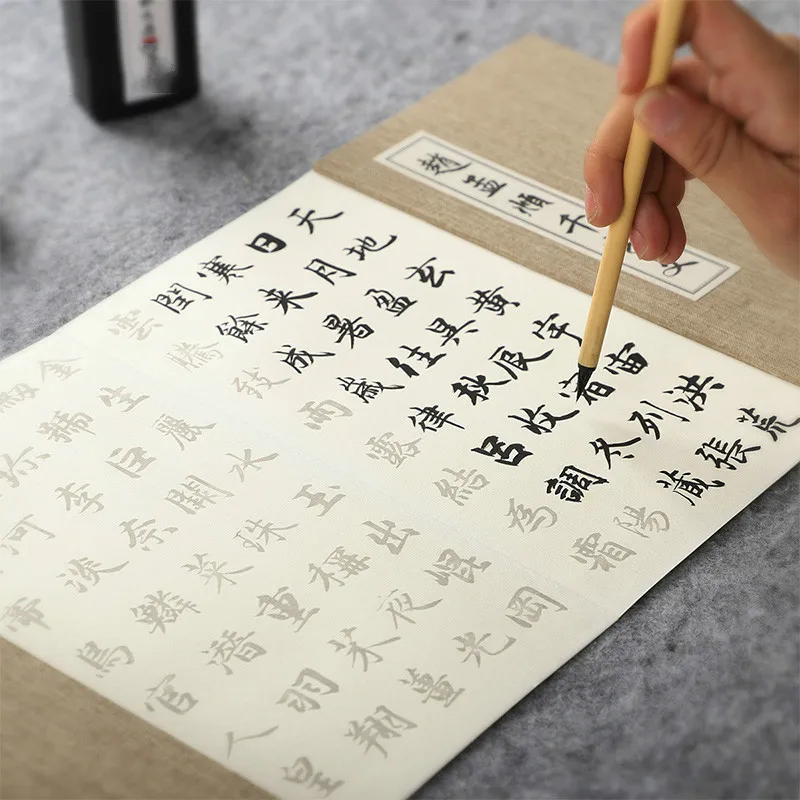 趙孟頫千文
天地玄黃宇宙洪荒
日月盈昃辰宿列張
寒来暑往秋收冬藏
閏餘成歲律呂調陽
雲騰致雨露結為霜
金生麗水玉出崐岡
劍號巨闕珠稱夜光
珍李柰菜重芥薑
河淡鱗潛羽翔
帝鳥官人皇